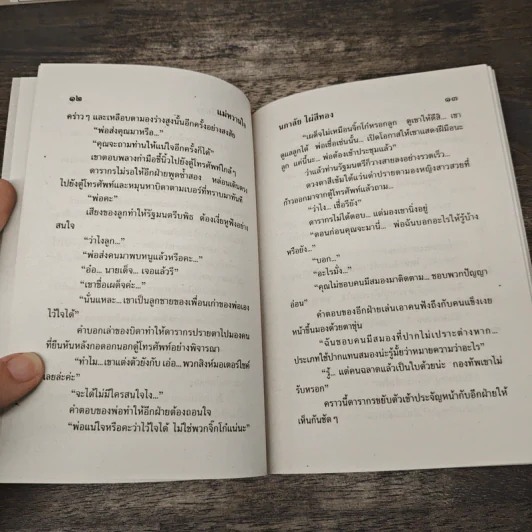 ๑๒
แม่หวานใจ
คร่าวๆ และเหลือบตามองร่างสูงนั้นอีกครั้งอย่างสงสัย
"พ่อส่งคุณมาหรือ..."
"คุณจะถามท่านให้แน่ใจอีกครั้งก็ได้"
เขาตอบพลางทำมือชี้นิ้วไปยังตู้โทรศัพท์ใกล้ๆ
ดารากรไม่รอให้อีกฝ่ายพูดซ้ำสอง หล่อนเดินตรง
ไปยังตู้โทรศัพท์และหมุนหาบิดาตามเบอร์ที่ทราบมาทันที
"พ่อคะ"
เสียงของลูกทำให้รัฐมนตรีบพิธ ต้องเงี่ยหูฟังอย่าง
สนใจ
"ว่าไงลูก..."
"พ่อส่งคนมาพบหนูแล้วหรือคะ..."
"อ้อ... นายเด็จ... เจอแล้วรึ"
"เขาชื่อเผด็จค่ะ..."
"นั่นแหละ... เขาเป็นลูกชายของเพื่อนเก่าของพ่อเอง
ไว้ใจได้"
คำบอกเล่าของบิดาทำให้ดารากรปรายตาไปมองคน
ที่ยืนหันหลังกอดอกนอกตู้โทรศัพท์อย่างพิจารณา
"ทำไม... เขาแต่งตัวยังกับ เอ้อ... พวกสิงห์มอเตอร์ไซค์
เลยล่ะค่ะ"
"จะได้ไม่มีใครสนใจไง..."
คำตอบของพ่อทำให้อีกฝ่ายต้องถอนใจ
"พ่อแน่ใจหรือคะว่าไว้ใจได้ ไม่ใช่พวกจิ๊กโก๋แน่นะ"
นภาลัย ไผ่สีทอง
๑๓
"เผด็จไม่เหมือนจิ๊กโก๋หรอกลูก ดูเขาให้ดีสิ... เขา
ดูแลลูกได้ พ่อเชื่อเช่นนั้น... เปิดโอกาสให้เขาแสดงฝีมือนะ
ลูก แค่นี้นะ... พ่อต้องเข้าประชุมแล้ว"
ว่าแล้วท่านรัฐมนตรีก็วางสายลงอย่างรวดเร็ว...
ดวงตาสีเข้มใต้แว่นดำปรายตามองหญิงสาวสวยที่
ก้าวออกมาจากตู้โทรศัพท์แล้วถาม...
"ว่าไง... เชื่อรึยัง"
ดารากรไม่ได้ตอบ... แต่มองเขานิ่งอยู่
"ตอนก่อนคุณจะมานี่... พ่อฉันบอกอะไรให้รู้บ้าง
หรือยัง..."
"บอก..."
"อะไรมั่ง..."
"คุณไม่ชอบคนมีสมองมาติดตาม... ชอบพวกปัญญา
อ่อน"
คำตอบของอีกฝ่ายเล่นเอาคนฟังถึงกับคนแข็งเงย
หน้าขึ้นมองด้วยตาขุ่น
"ฉันชอบคนมีสมองที่ปากไม่เปราะต่างหาก...
ประเภทใช้ปากแทนสมองน่ะรู้มั้ยว่าหมายความว่าอะไร"
"รู้... แต่คนฉลาดแล้วเป็นใบ้ด้วยน่ะ กองทัพเขาไม่
รับหรอก"
คราวนี้ดารากรขยับตัวเข้าประจัญหน้ากับอีกฝ่ายให้
เห็นกันชัดๆ